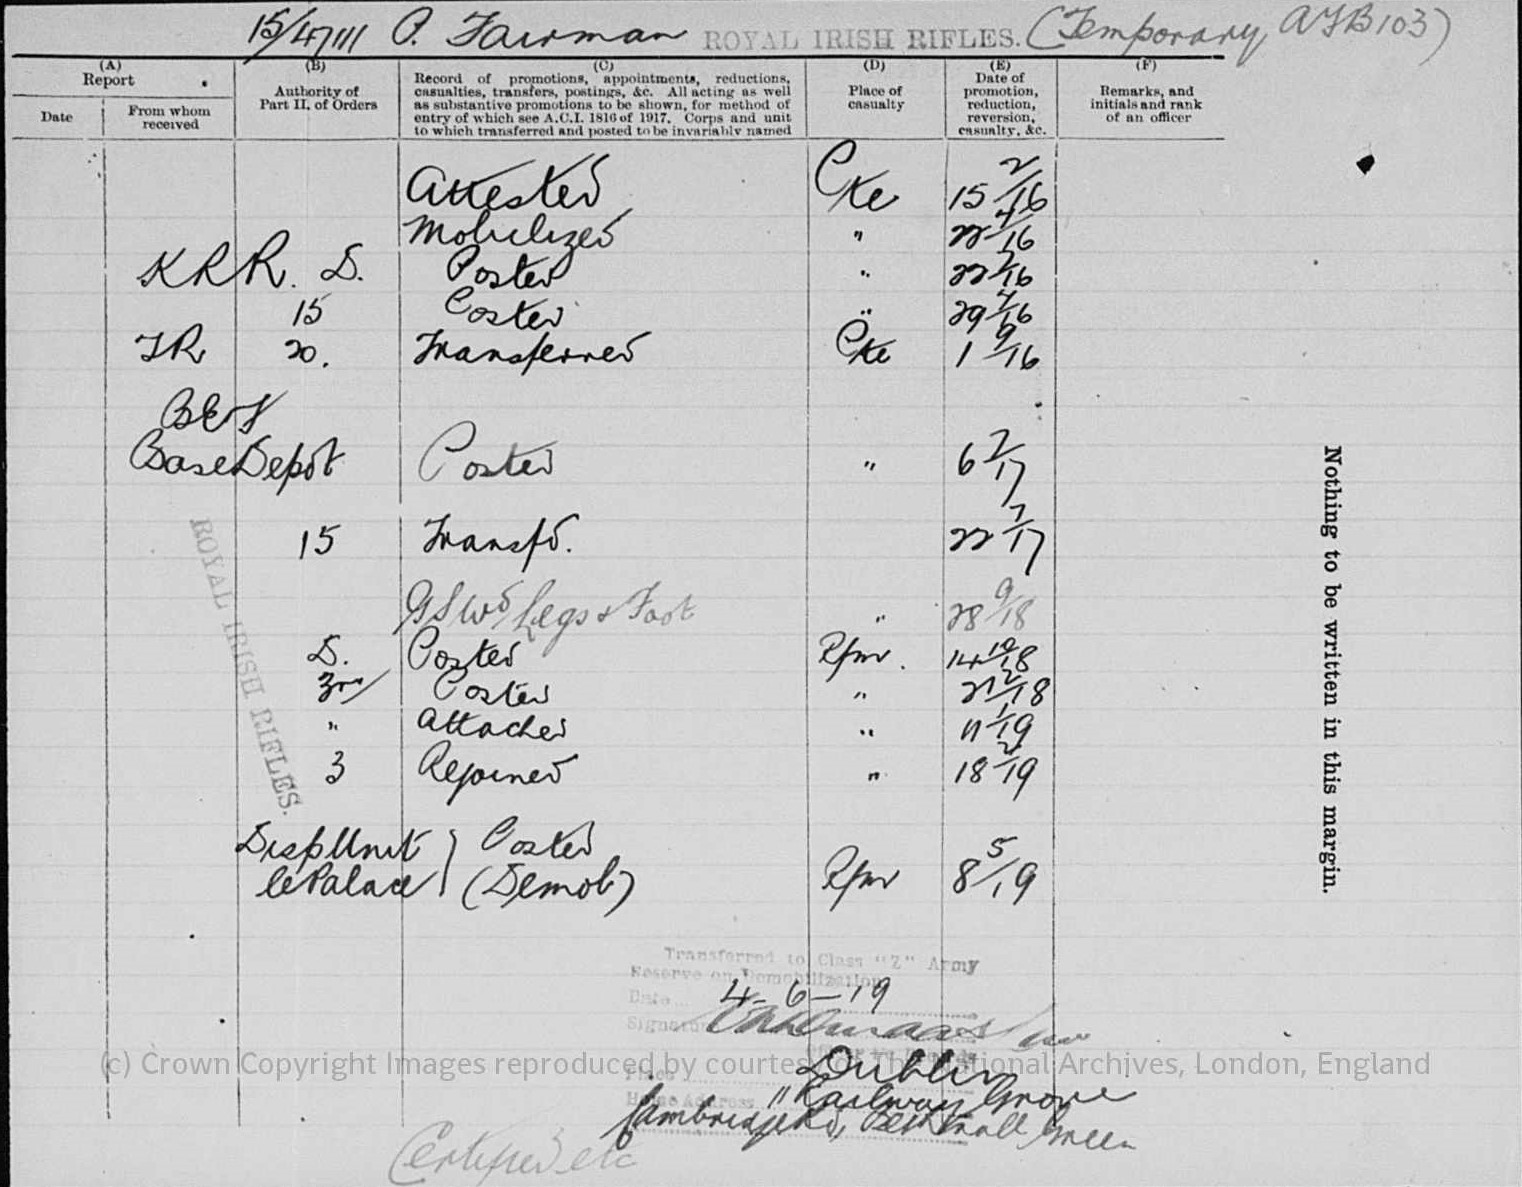 15/47111 P. Fairman ROYAL IRISH RIFLES. (Temporary AFB103)
(A) Report
Date
From whom received
(B)
Authority of Part II. of Orders
(C)
Record of promotions, appointments, reductions,
casualties, transfers, postings, &c. All acting as well
as substantive promotions to be shown, for method of
entry of which see A.C.I. 1816 of 1917. Corps and unit
to which transferred and posted to be invariably named
(D)
Place of casualty
(E)
Date of
promotion,
reduction,
reversion,
casualty, &c.
(F)
Remarks, and
initials and rank
of an officer
Attested Pte 15 2/16
Mobilized " 22 /16
KRR. D. Posted " 22 /16
15 Posted " 29 /16
TR 20. Transferred Pte 1 9/16
BEF
Base Depot Posted " 6 7/17
15 Transfd. 22 7/17
GSWd Legs & Foot " 28 9/18
D. Posted Rfmn. 14 10/18
3rd Posted " 21 12/18
" Attached " 11 1/19
3 Rejoined " 18 2/19
Disp Unit } Posted
C Palace } (Demob) Rfmn 8 5/19
ROYAL IRISH RIFLES.
Nothing to be written in this margin.
Transferred to Class "Z" Army
Reserve on Demobilization
Date 4-6-19
Signature
Place Dublin
Home Address 11 Railway Grove
Cambridge Rd, Bethnall Green
Certified etc
(c) Crown Copyright Images reproduced by courtesy of The National Archives, London, England